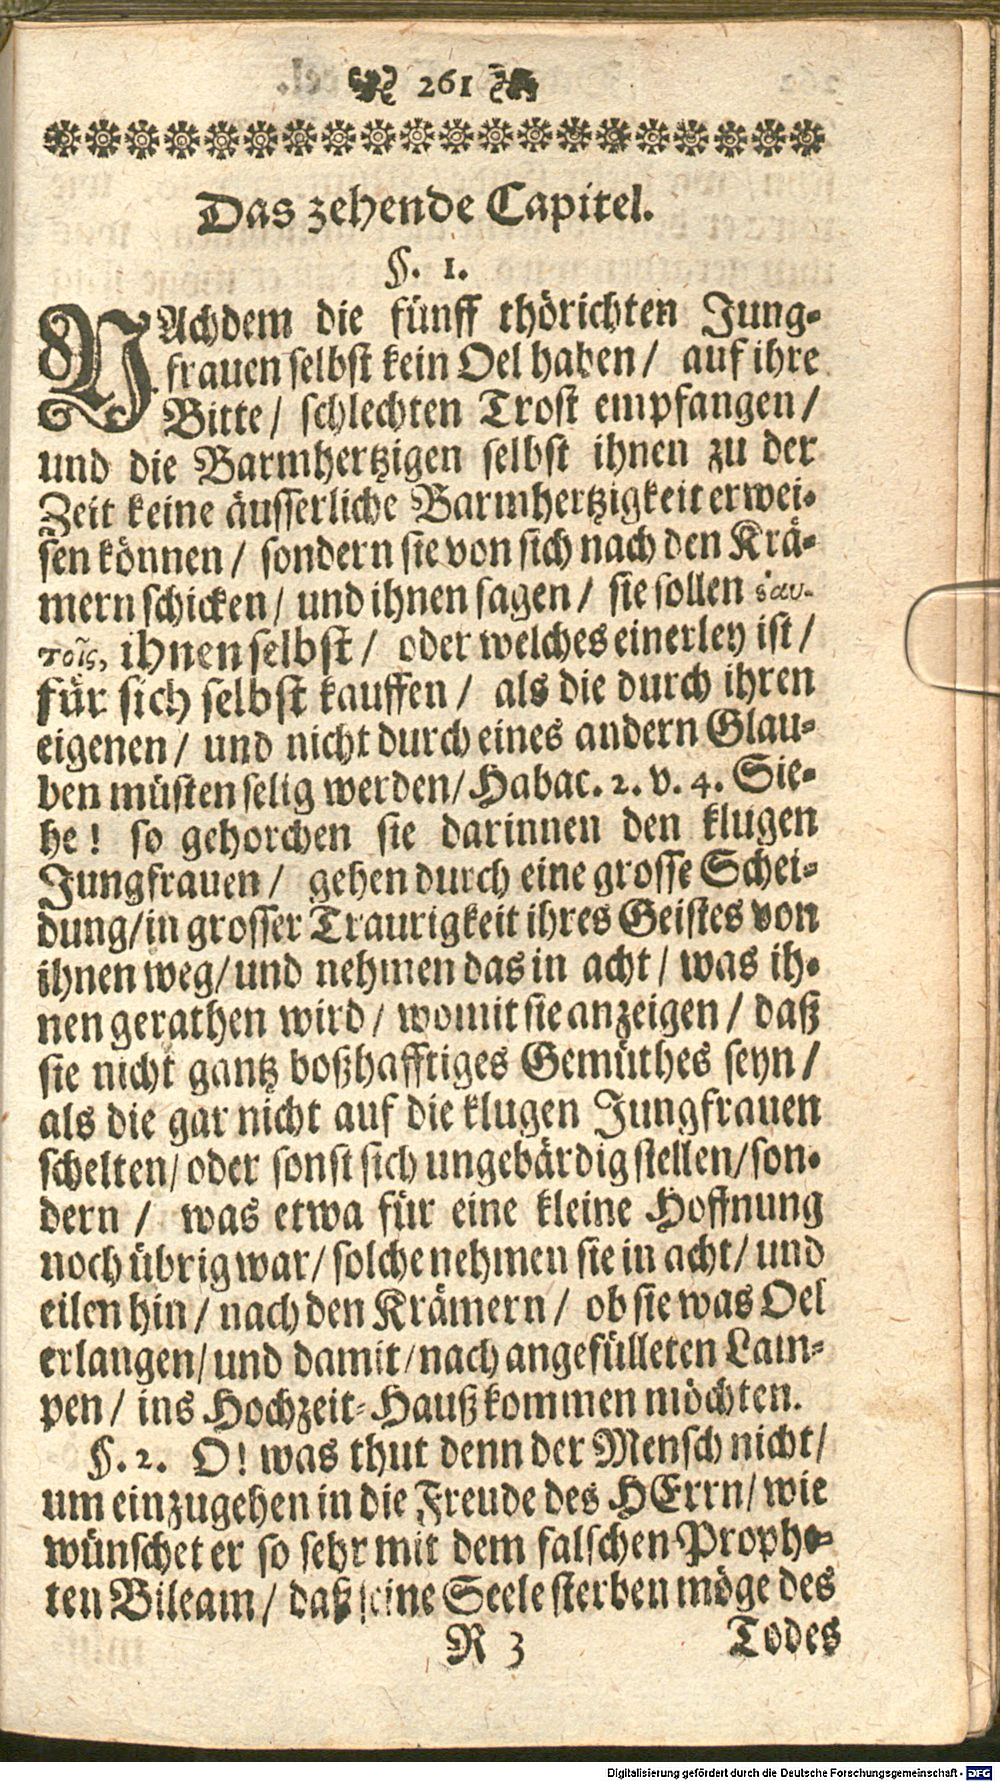 261
Das zehende Capitel.
§. 1.
NAchdem die fünff thörichten Jung-
frauen selbst kein Oel haben / auf ihre
Bitte / schlechten Trost empfangen /
und die Barmhertzigen selbst ihnen zu der
Zeit keine äusserliche Barmhertzigkeit erwei-
sen können / sondern sie von sich nach den Krä-
mern schicken / und ihnen sagen / sie sollen ἑαυ-
τοῖς, ihnen selbst / oder welches einerley ist /
für sich selbst kauffen / als die durch ihren
eigenen / und nicht durch eines andern Glau-
ben müsten selig werden / Habac. 2. v. 4. Sie-
he! so gehorchen sie darinnen den klugen
Jungfrauen / gehen durch eine grosse Schei-
dung / in grosser Traurigkeit ihres Geistes von
ihnen weg / und nehmen das in acht / was ih-
nen gerathen wird / womit sie anzeigen / daß
sie nicht gantz boßhafftiges Gemüthes seyn /
als die gar nicht auf die klugen Jungfrauen
schelten / oder sonst sich ungebärdig stellen / son-
dern / was etwa für eine kleine Hoffnung
noch übrig war / solche nehmen sie in acht / und
eilen hin / nach den Krämern / ob sie was Oel
erlangen / und damit / nach angefülleten Lam-
pen / ins Hochzeit-Hauß kommen möchten.
§. 2. O! was thut denn der Mensch nicht /
um einzugehen in die Freude des HErrn / wie
wünschet er so sehr mit dem falschen Prophe-
ten Bileam / daß seine Seele sterben möge des
R 3 Todes
Digitalisierung gefördert durch die Deutsche Forschungsgemeinschaft - DFG